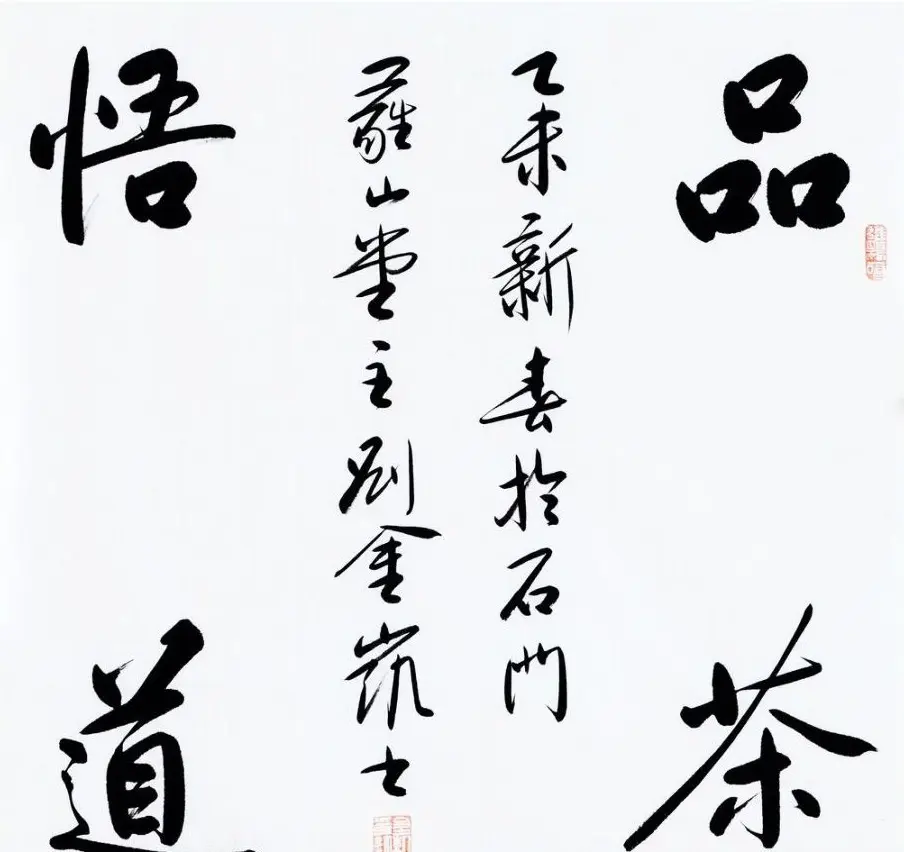 品茶
乙未新春於石門
山堂主劉金凱士
悟道